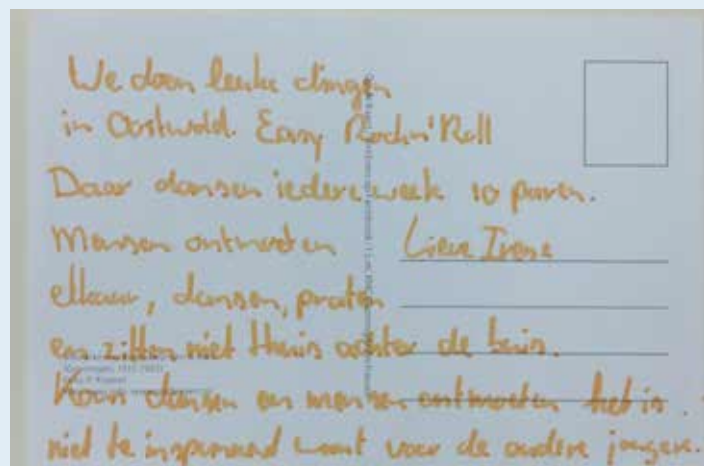 We doen leuke dingen
in Oostwold. Easy Rock n' Roll
Daar dansen iedere week 10 paren.
Mensen ontmoeten
Lieve Irene
elkaar, dansen, praten
en zitten niet thuis achter de buis.
Kom dansen en mensen ontmoeten het is
niet te inspannend want voor de oudere jongere.